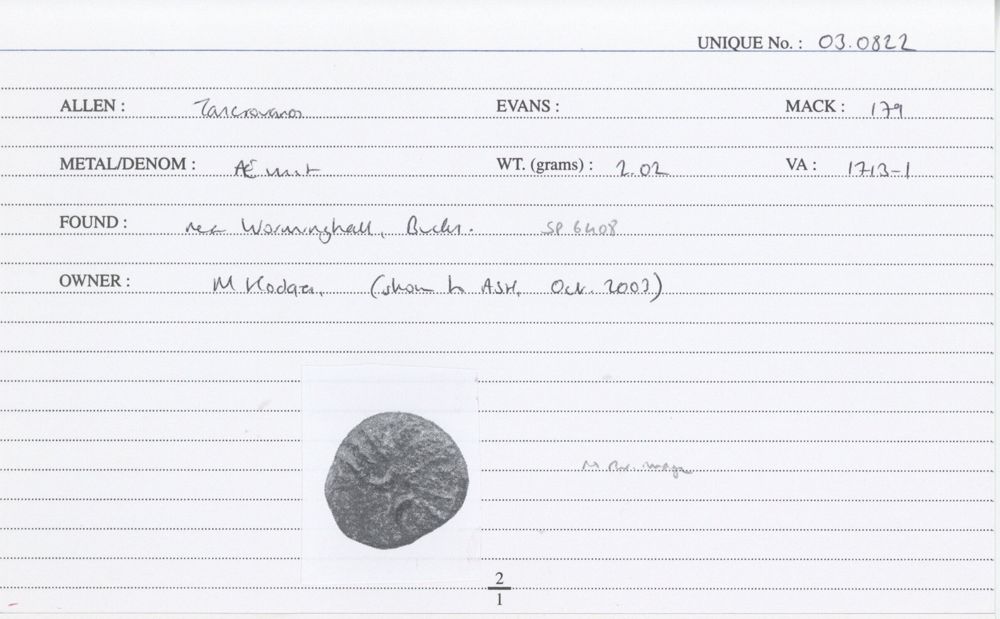 UNIQUE No. : 03.0822
ALLEN : Tasciovanos EVANS : MACK : 179
METAL/DENOM : Æ unit WT. (grams) : 2.02 VA : 1713-1
FOUND : near Worminghall, Bucks. SP 6408
OWNER : M Hodges, (shown to ASH, Oct. 2003)
2
1